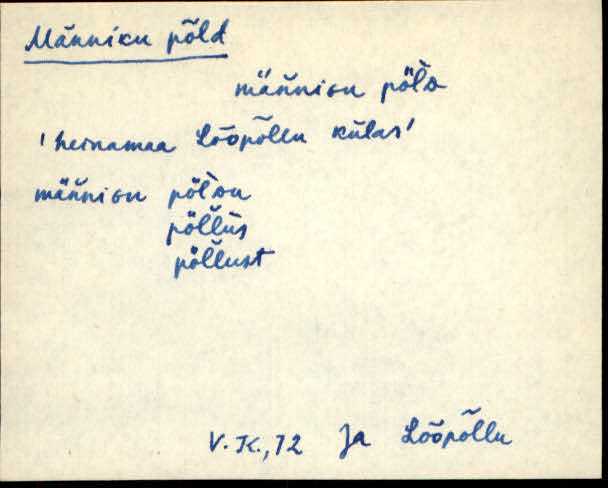 Männiku põld
männiɢu põl̀ᴅ
'heinamaa Lõõpõllu külas'
männiɢu põl̀ᴅu
põllus
põllust
V.K., 72 Ja Lõõpõllu